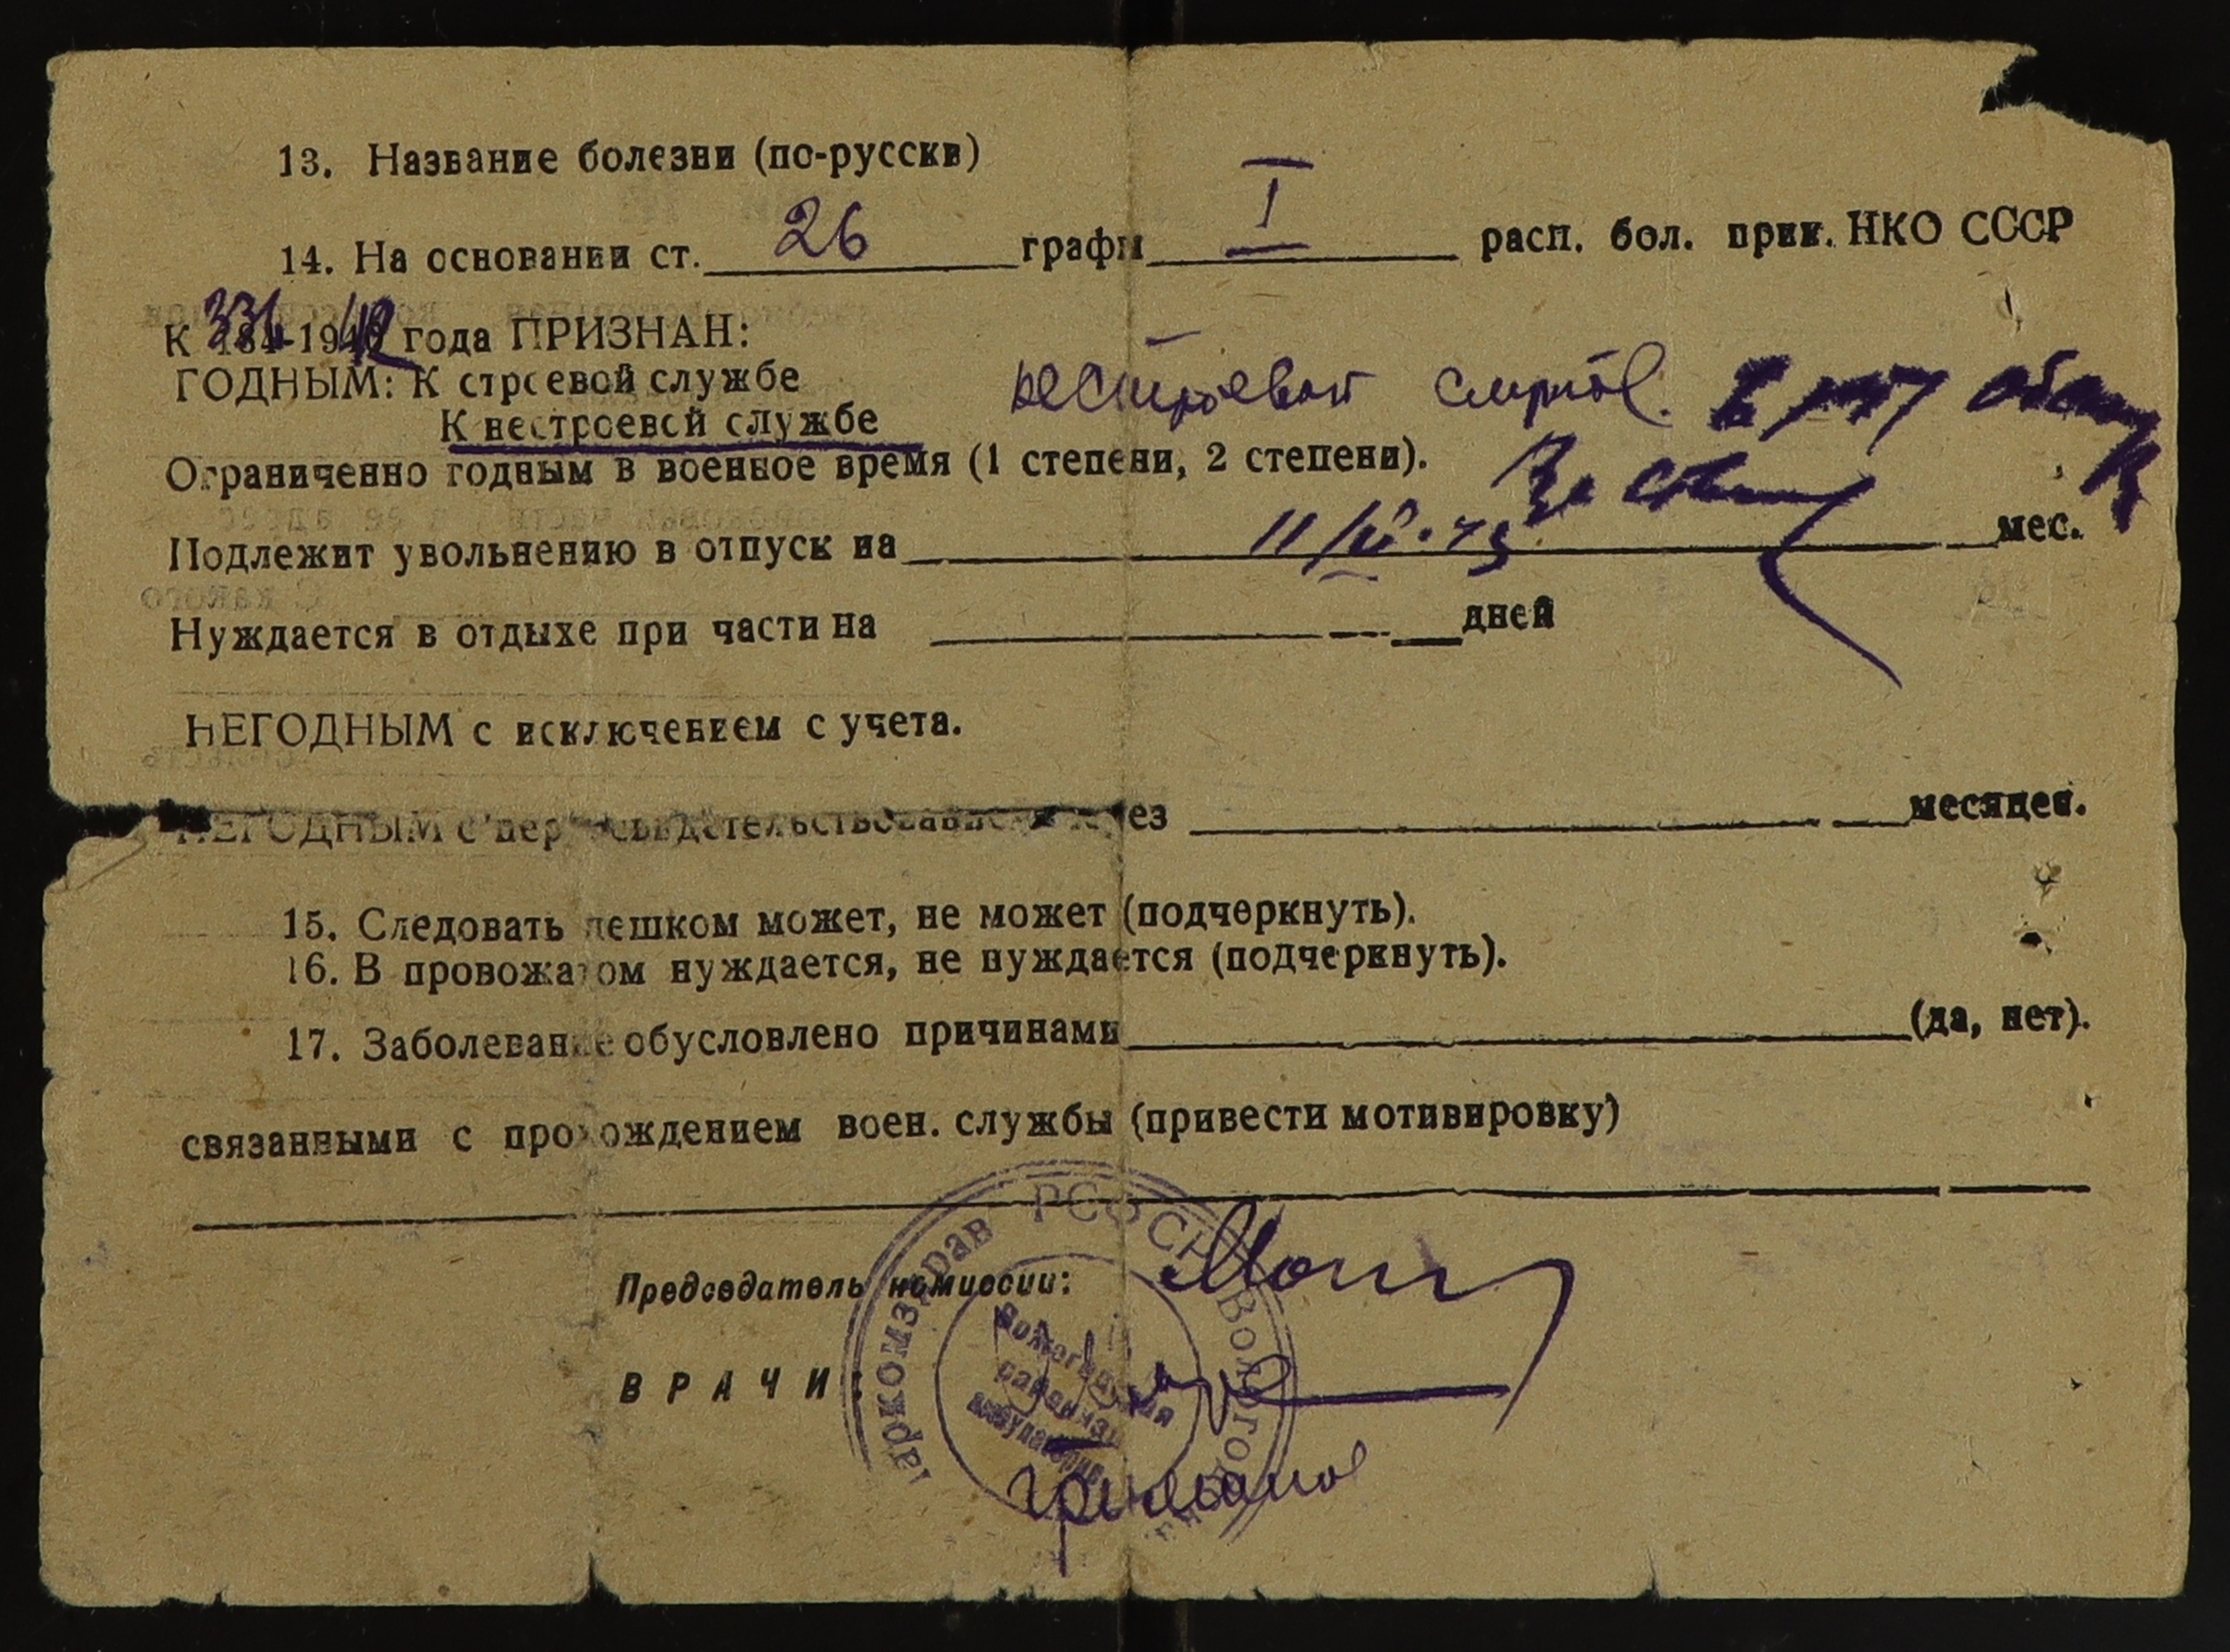 13. Название болезни (по-русски)
14. На основании ст. 26 графы I расп. бол. прик. НКО СССР
К 336-1942 года ПРИЗНАН:
ГОДНЫМ: К строевой службе
нестроевой
К нестроевой службе
Ограниченно годным в военное время (1 степени, 2 степени).
Подлежит увольнению в отпуск на мес.
Нуждается в отдыхе при части на дней
НЕГОДНЫМ с исключением с учета.
НЕГОДНЫМ с переосвидетельствованием через месяцев.
15. Следовать пешком может, не может (подчеркнуть).
16. В провожатом нуждается, не нуждается (подчеркнуть).
17. Заболевание обусловлено причинами (да, нет).
связанными с прохождением воен. службы (привести мотивировку)
Председатель комиссии:
ВРАЧИ:
Наркомздрав РСФСР
Вологодская
районная
амбулатория